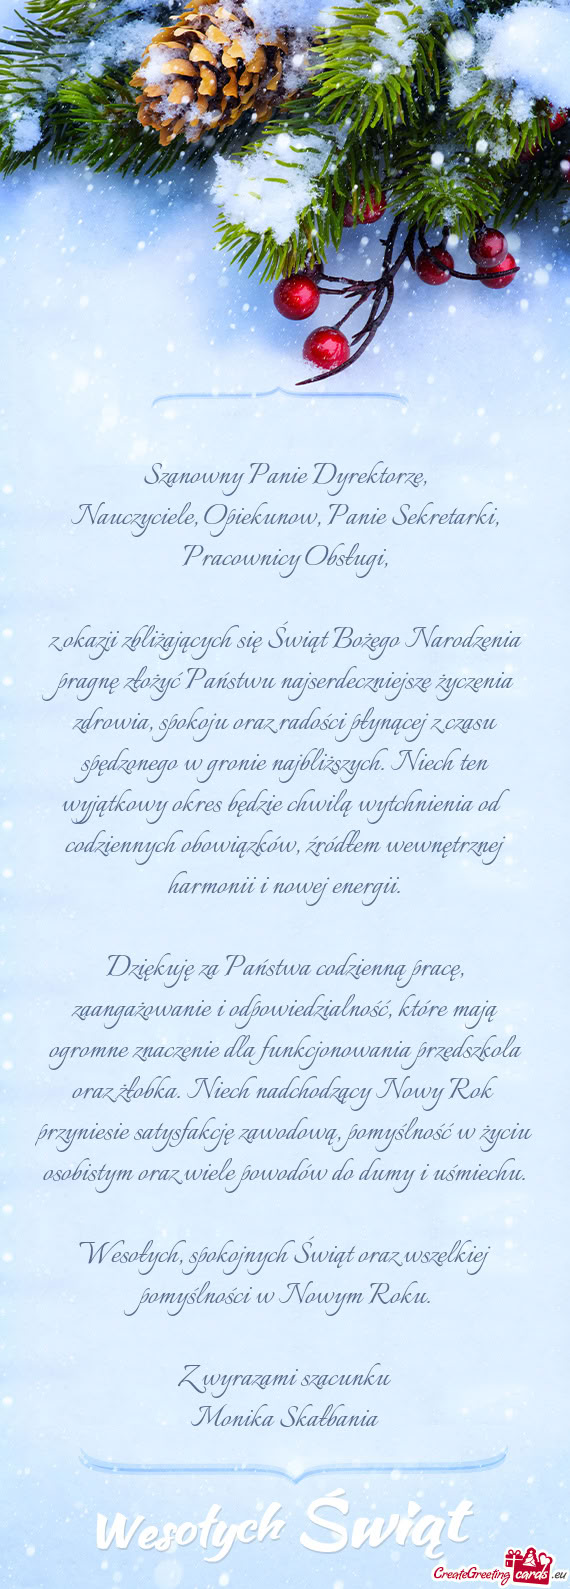 Szanowny Panie Dyrektorze,
Nauczyciele, Opiekunow, Panie Sekretarki,
Pracownicy Obsługi,
z okazji zbliżających się Świąt Bożego Narodzenia
pragnę złożyć Państwu najserdeczniejsze życzenia
zdrowia, spokoju oraz radości płynącej z czasu
spędzonego w gronie najbliższych. Niech ten
wyjątkowy okres będzie chwilą wytchnienia od
codziennych obowiązków, źródłem wewnętrznej
harmonii i nowej energii.
Dziękuję za Państwa codzienną pracę,
zaangażowanie i odpowiedzialność, które mają
ogromne znaczenie dla funkcjonowania przedszkola
oraz żłobka. Niech nadchodzący Nowy Rok
przyniesie satysfakcję zawodową, pomyślność w życiu
osobistym oraz wiele powodów do dumy i uśmiechu.
Wesołych, spokojnych Świąt oraz wszelkiej
pomyślności w Nowym Roku.
Z wyrazami szacunku
Monika Skałbania
Wesołych Świąt
CreateGreetingcards.eu